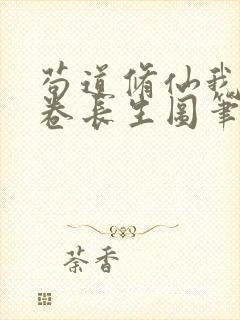 苟道修仙我
卷长生图笔
茶香